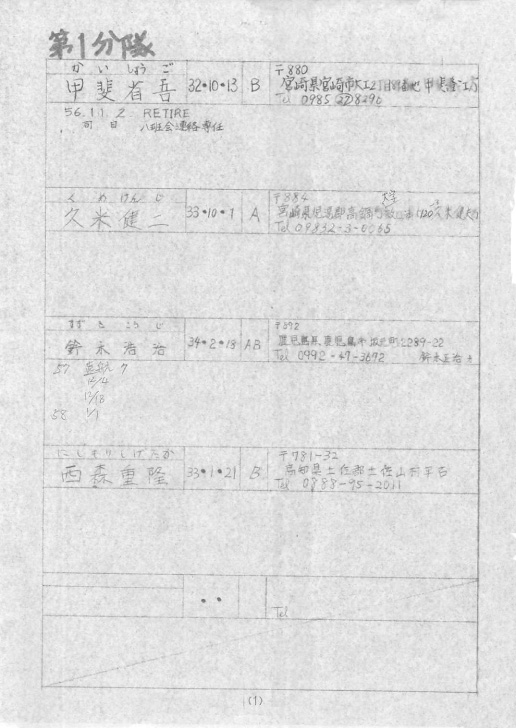 第1分隊
かいしょうご
甲斐省吾 32・10・13 B
〒880
宮崎県宮崎市大工2丁目 番地 甲斐 方
Tel 0985 8290
56.11.2 RETIRE
同日 八班会連絡専任
くめけんじ
久米健二 33・10・1 A
〒884
宮崎県児湯郡高鍋町
Tel 09832-3-0065
すずきこうじ
鈴木浩治 34・2・18 AB
〒892
鹿児島県鹿児島市坂元町2289-22
Tel 0992-47-3692 鈴木正治方
57
12/18
58 1/1
にしもりしげたか
西森重隆 33・1・21 B
〒781-32
高知県土佐郡土佐山村平石
Tel 0888-95-2011
・・
Tel
(1)